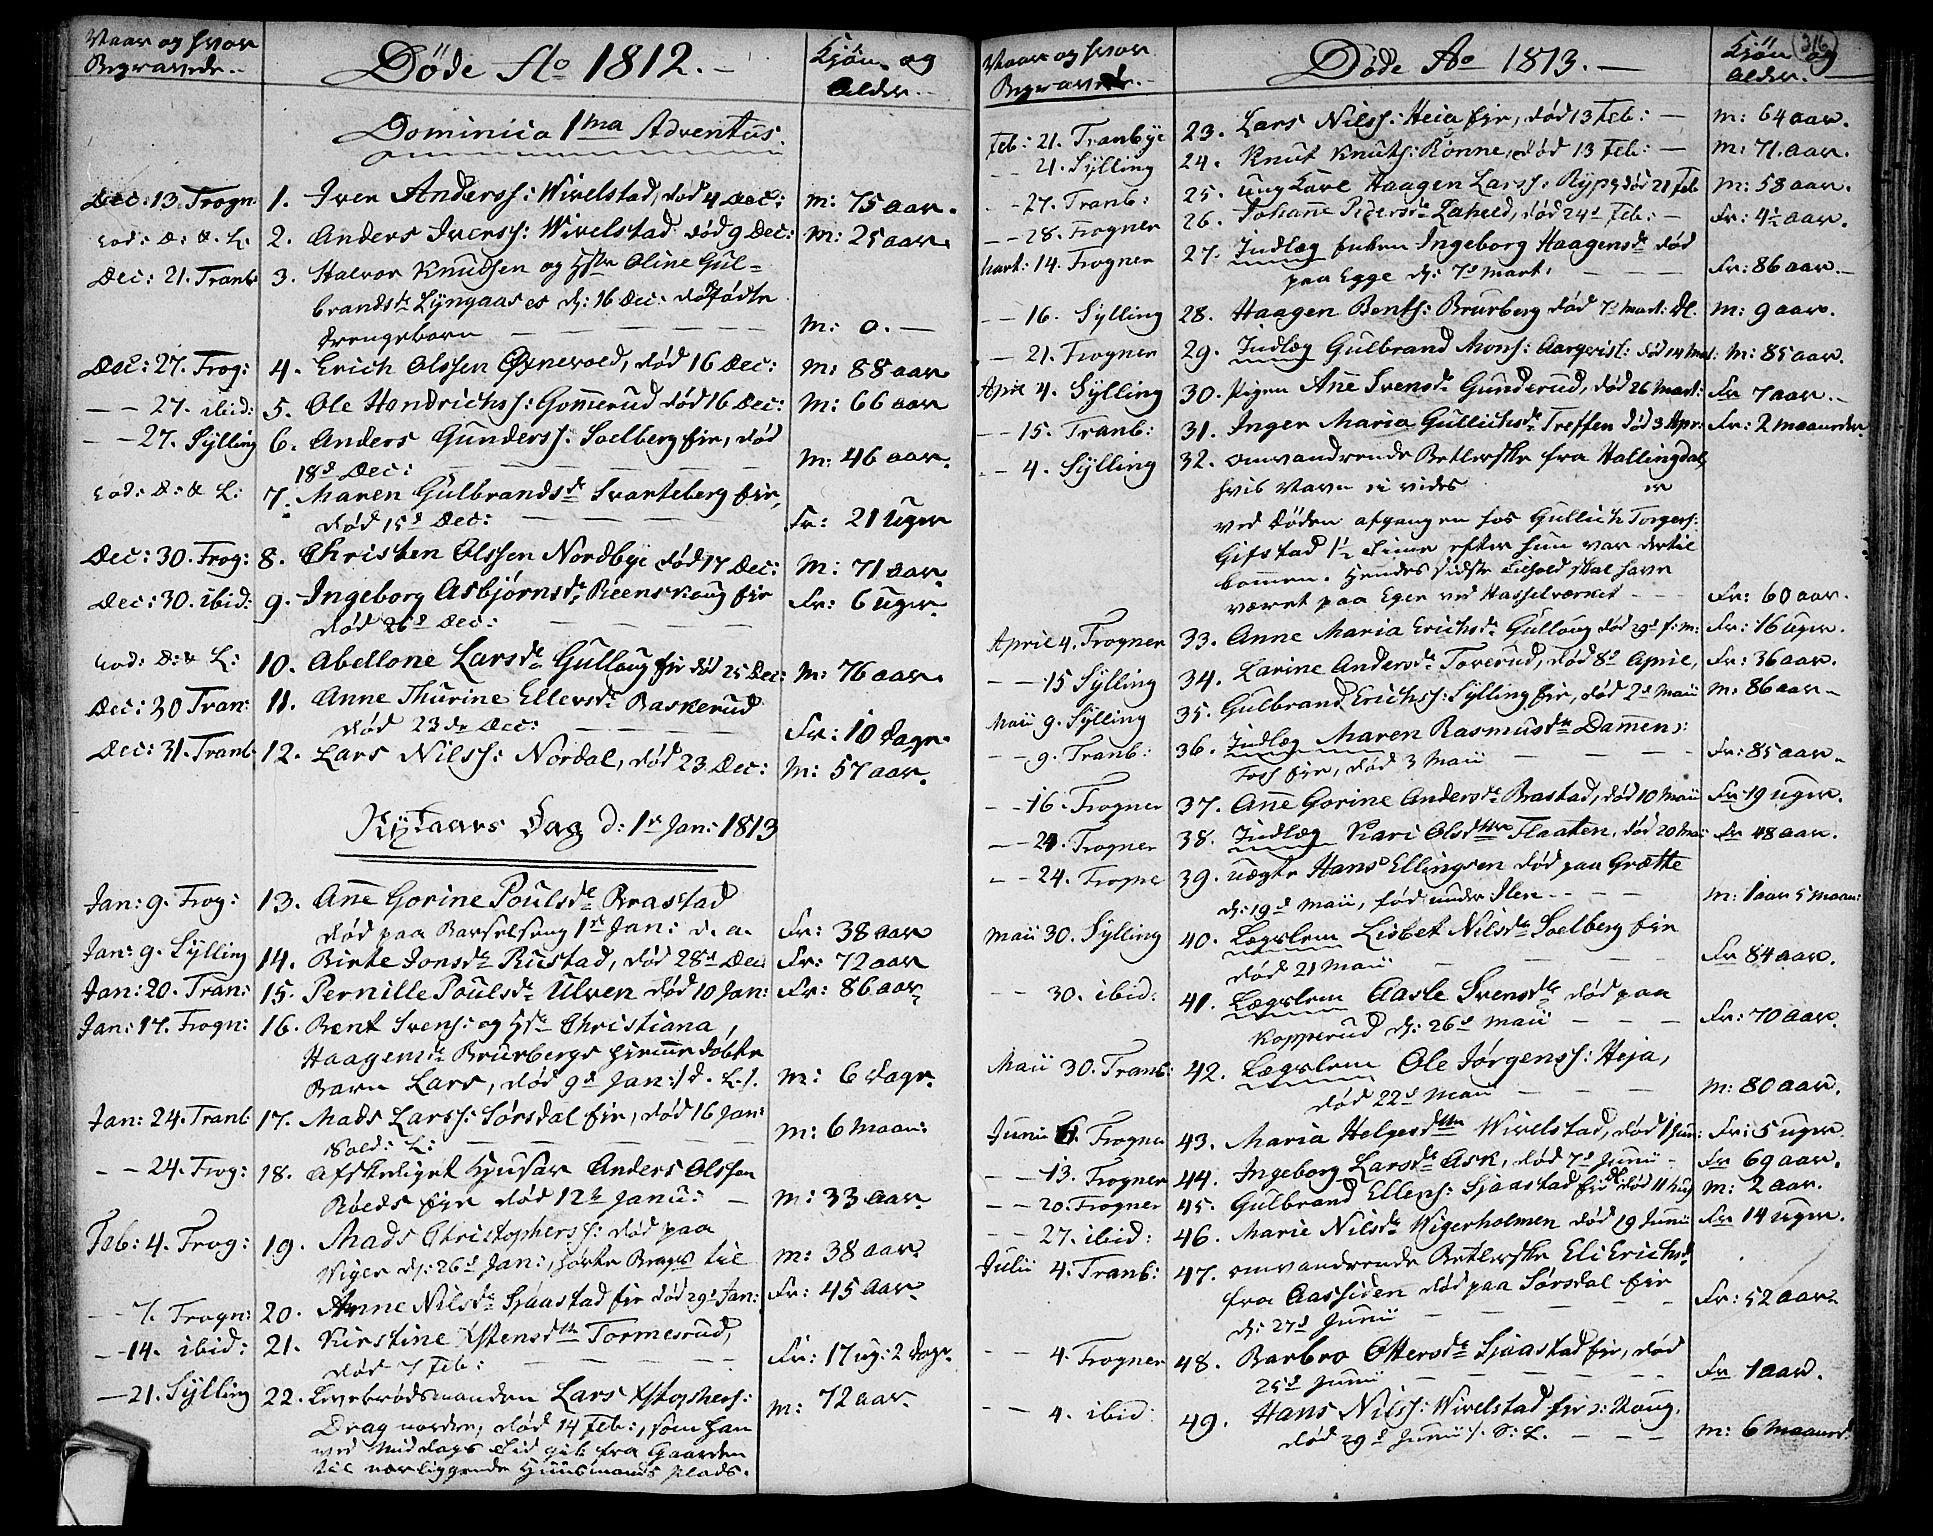 Naar og hvor
Begravede.
Døde Ao 1812.
Kjön og
Alder.
Dominica 1ma Adventus.
Dec: 13. Trogn: 1. Iver Anderss: Wivelstad, død 4 Dec: M: 75 aar.
eod: D: & L: 2. Anders Iverss: Wivelstad død 9 Dec: M: 25 aar.
Dec: 21. Tranb: 3. Halvor Knudsen og Hstr Oline Gul-
brandsdr Lyngaas es d: 16 Dec: dødfødte
drengebarn M: 0.
Dec: 27. Frog: 4. Erich Olssen Øxnevold, død 16 Dec: M: 88 aar
27. ibid: 5. Ole Hendrichss: Gomerud død 16 Dec: M: 66 aar
27. Sylling 6. Anders Gunderss: Solberg eje, død
18d Dec: M: 46 aar.
eod: D: & L: 7. Maren Gulbrandsdr Svarteberg eje,
død 15d Dec: Fr: 21 Uger
Dec: 30. Frog: 8. Christen Olssen Nordbye død 17 Dec: M: 71 aar.
Dec: 30. ibid: 9. Ingeborg Asbjørnsdr Reenskoug eje
død 26d Dec: Fr: 6 uger.
eod: D: & L: 10. Abellone Larsdr Gulloug eje død 25 Dec: M: 76 aar.
Dec: 30 Tran: 11. Anne Thurine Ellersdr Baskerud
død 23de Dec: Fr: 10 dage.
Dec: 31. Tranb: 12. Lars Nilss: Nordal, død 23 Dec: M: 57 aar.
Nytaars Dag d: 1r Jan: 1813
Jan: 9. Frog: 13. Añe Gorine Poulsdr Brastad
død paa Barselseng 1r Jan: d. a. Fr: 38 aar
Jan: 9. Sylling 14. Birte Jonsdr Rustad, død 28d Dec: Fr: 72 aar
Jan: 20. Tran: 15. Pernille Poulsdr Ulven død 10 Jan: Fr: 86 aar
Jan: 17. Frogn: 16. Bent Svens: og Hstr Christiana
Haagensdr Brurbergs hjemmedøbte
Barn Lars, død 9d Jan: /d. L./. M: 6 dage.
Jan: 24. Tranb: 17. Mads Larss: Sørsdal eje, død 16 Jan:
18 eod: L: M: 6 maan:
24. Frog: 18. Afskediget Husar Anders Olssen
Røeds eje død 12te Janu: M: 33 aar.
Feb: 4. Frog: 19. Mads Christopherss: død paa
Viger d: 26d Jan:, hørte Brags til M: 38 aar.
7. Frogn: 20. Anne Nilsdr Sjaastad eje død 29d Jan: Fr: 45 aar.
14. ibid: 21. Kirstine Xstensdtr Tormesrud,
død 7 Feb: Fr: 17 ug: 2 dage.
21. Sylling 22. Levebrødsmanden Lars Xstophers:
Drag norden, død 14 Feb:, som han
ved Middags Tid gik fra Gaarden
til nærliggende Huusmands plads. M: 72 aar.
316
Naar og hvor
Begravede.
Døde Ao 1813.
Kjön og
Alder.
Feb: 21. Tranbye 23. Lars Nilss: Heia eje, død 13 Feb: M: 64 aar.
21. Sylling 24. Knut Knuts: Rønne, død 13 Feb: M: 71 aar.
27. Tranb: 25. Ung Karl Haagen Larss: Rype død 21 Feb M: 58 aar.
28. Frogner 26. Johañe Pedersdr Laheld, død 24d Feb: Fr: 4½ aar.
Mart: 14. Frogner 27. Indlæg enken Ingeborg Haagensdr død
paa Egge d: 7d Mart: Fr: 86 aar.
16. Sylling 28. Haagen Bents: Brurberg død 7d Mart: M: 9 aar.
21. Frogner 29. Indlæg Gulbrand Mons: Aarqvist: død 14 Mart: M: 85 aar.
April 4. Sylling 30. Pigen Añe Svensdr Gunderud, død 26 Mart: Fr 7 aar.
15. Tranb: 31. Inger Maria Gullichsdr Treffen død 3 Apr: Fr: 2 maaneder.
4. Sylling 32. omvandrende Betlerske fra Hallingdal,
hvis Navn ei vides er
ved Døden afgangen hos Gullich Torgers:
Gifstad 1½ Time efter hun var dertil
kommen. Hendes sidste Tilhold skal have
været paa Eger ved Hasselværket Fr: 60 aar.
Aprile 4. Frogner 33. Anne Maria Erichsdr Gulloug død 29d f: m: Fr: 16 uger.
15 Sylling 34. Larine Andersdr Toverud, død 8d April, Fr: 36 aar.
Maii 9. Sylling 35. Gulbrand Erichss: Sylling eje, død 2d Maii M: 86 aar
9. Tranb: 36. Indlæg Maren Rasmusdtr Damen:
eje, død 3 Maii Fr: 85 aar.
16. Frogner 37. Añe Gorine Andersdr Brastad, død 10 Maii Fr 19 uger.
24. Frogner 38. Indlæg Kari Olsdttr Flaaten, død 20 Maii Fr 48 aar.
24. Frogne 39. uægte Hans Ellingsen død paa Grøtte
d: 19d Maii, født under Ilen M: 1 aar 5 maan:
Maii 30. Sylling 40. Lægslem Lisbet Nilsdr Solberg eje
død 21 Maii Fr 84 aar.
30. ibid: 41. Lægslem Aasle Svensdtr død paa
Kopperud d: 26d Maii Fr: 70 aar.
Maii 30. Tranb: 42. Lægslem Ole Jørgenss: Heja,
død 22d Maii M: 80 aar.
Junii 6. Frogner 43. Maria Helgesdttr Wivelstad, død 1 Jun: Fr: 5 uger.
13. Frogner 44. Ingeborg Larsdr Ask, død 7d Junii Fr 69 aar.
20. Frogner 45. Gulbrand Ellens: Sjaastad eje død 11 M: 2 aar.
27. ibid: 46. Marie Nilsdr Vigerholmen død 19 Junii Fr 14 uger.
Julii 4. Tranb: 47. omvandrende Betlerske Eli Erichsdr
fra Aassiden død paa Sørsdal eje
d: 27d Junii Fr: 52 aar
4. Frogner 48. Barbro Ottersdr Sjaastad eje, død
25d Junii Fr 1 aar.
4. ibid: 49. Hans Nilss: Wivelstad eje : Houg,
død 29d Junii /. D: L. M: 6 maaned: